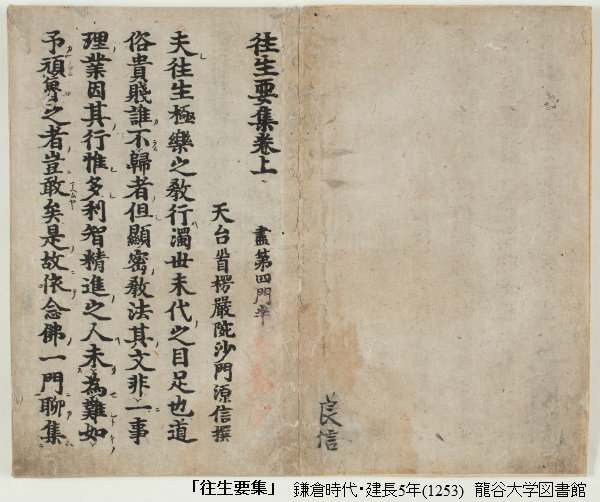 良信
往生要集卷上 盡第四門半
天台首楞嚴院沙門源信撰
夫往生極樂之教行濁世末代之目足也道
俗貴賤誰不歸者但顯密教法其文非一事
理業因其行惟多利智精進之人未為難如
予頑魯之者豈敢矣是故依念佛一門聊集
「往生要集」 鎌倉時代・建長5年(1253) 龍谷大学図書館